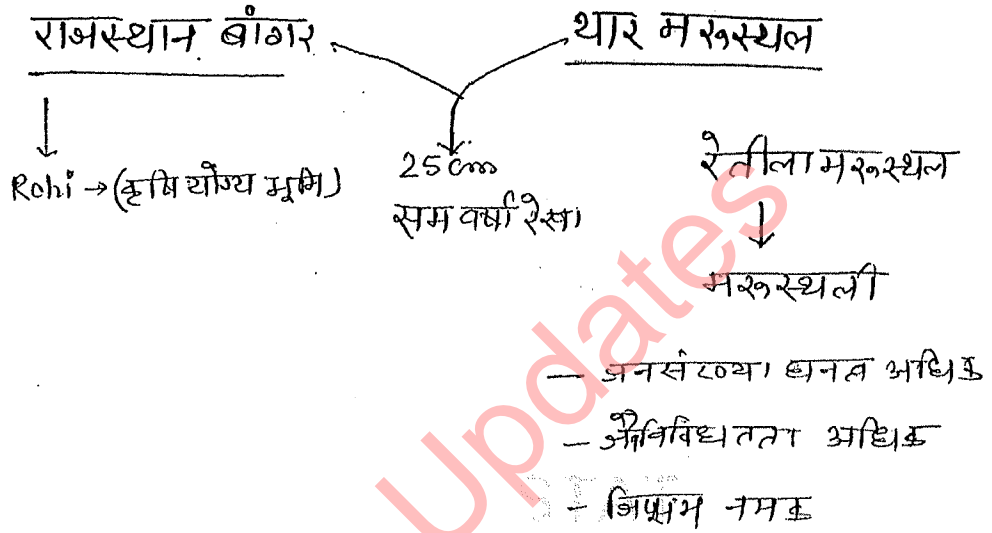 राजस्थान बांगर
थार मरूस्थल
Rohi → (कृषि योग्य भूमि)
25 cm
सम वर्षा रेखा
रेतीला मरूस्थल
मरूस्थली
— जनसंख्या घनत्व अधिक
— जैवविविधतता अधिक
- जिप्सम नमक
Updates